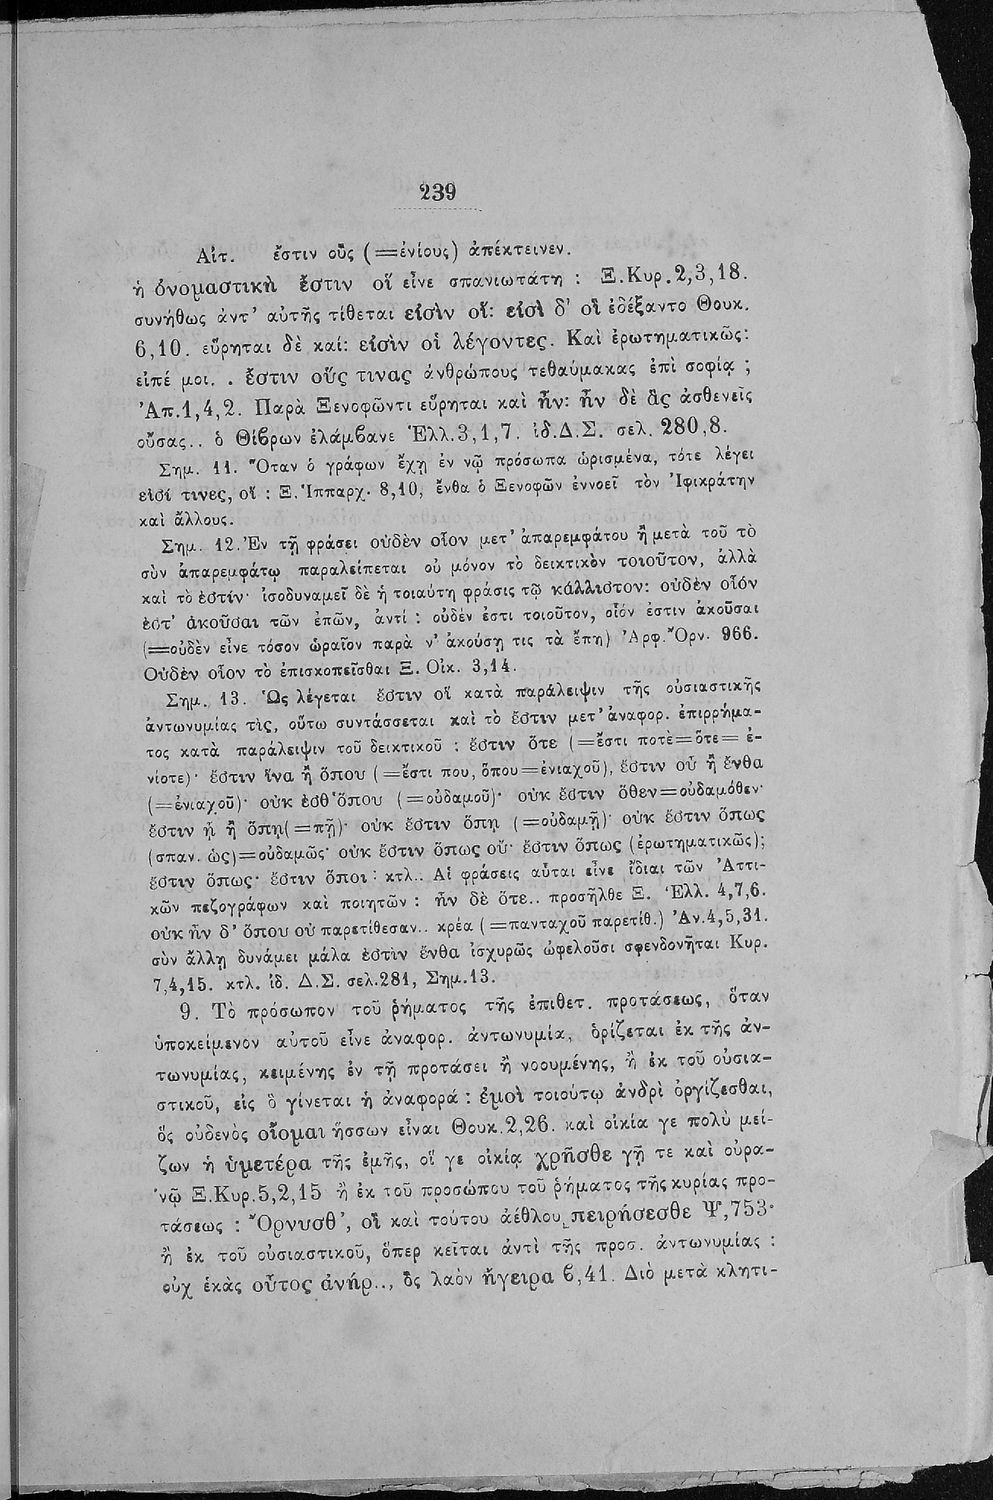 239
Αἰτ. ἔστιν οὓς (=ἐνίους) ἀπέκτεινεν.
ἡ ὀνομαστικὴ ἔστιν οἵ εἶνε σπανιωτάτη : Ξ.Κυρ.2,3,18.
συνήθως ἀντ’ αὐτῆς τίθεται εἰσὶν οἵ: εἰσὶ δ’ οἳ ἐδέξαντο Θουκ.
6,10. εὕρηται δὲ καί: εἰσὶν οἱ λέγοντες. Καὶ ἐρωτηματικῶς:
εἰπέ μοι. . ἔστιν οὕς τινας ἀνθρώπους τεθαύμακας ἐπὶ σοφίᾳ ;
Ἀπ.1,4,2. Παρὰ Ξενοφῶντι εὕρηται καὶ ἦν: ἦν δὲ ἃς ἀσθενεῖς
οὔσας.. ὁ Θίβρων ἐλάμβανε Ἑλλ.3,1,7. ἰδ.Δ.Σ. σελ. 280,8.
Σημ. 11. Ὅταν ὁ γράφων ἔχῃ ἐν νῷ πρόσωπα ὡρισμένα, τότε λέγει
εἰσί τινες, οἵ : Ξ.Ἱππαρχ. 8,10, ἔνθα ὁ Ξενοφῶν ἐννοεῖ τὸν Ἰφικράτην
καὶ ἄλλους.
Σημ. 12. Ἐν τῇ φράσει οὐδὲν οἷον μετ’ ἀπαρεμφάτου ἢ μετὰ τοῦ τὸ
σὺν ἀπαρεμφάτῳ παραλείπεται οὐ μόνον τὸ δεικτικὸν τοιοῦτον, ἀλλὰ
καὶ τὸ ἐστίν· ἰσοδυναμεῖ δὲ ἡ τοιαύτη φράσις τῷ κάλλιστον: οὐδὲν οἷόν
ἐστ’ ἀκοῦσαι τῶν ἐπῶν, ἀντί : οὐδέν ἐστι τοιοῦτον, οἷόν ἐστιν ἀκοῦσαι
(=οὐδὲν εἶνε τόσον ὡραῖον παρὰ ν’ ἀκούσῃ τις τὰ ἔπη) Ἀρφ. Ὄρν. 966.
Οὐδὲν οἷον τὸ ἐπισκοπεῖσθαι Ξ. Οἰκ. 3,14.
Σημ. 13. Ὡς λέγεται ἔστιν οἵ κατὰ παράλειψιν τῆς οὐσιαστικῆς
ἀντωνυμίας τὶς, οὕτω συντάσσεται καὶ τὸ ἔστιν μετ’ ἀναφορ. ἐπιρρήμα-
τος κατὰ παράλειψιν τοῦ δεικτικοῦ : ἔστιν ὅτε (=ἔστι ποτὲ=ὅτε= ἐ-
νίοτε)· ἔστιν ἵνα ἢ ὅπου (=ἔστι που, ὅπου=ἐνιαχοῦ), ἔστιν οὗ ἢ ἔνθα
(=ἐνιαχοῦ)· οὐκ ἐσθ’ ὅπου (=οὐδαμοῦ)· οὐκ ἔστιν ὅθεν=οὐδαμόθεν·
ἔστιν ᾗ ἢ ὅπῃ(=πῇ)· οὐκ ἔστιν ὅπῃ (=οὐδαμῇ)· οὐκ ἔστιν ὅπως
(σπαν. ὡς)=οὐδαμῶς· οὐκ ἔστιν ὅπως οὔ· ἔστιν ὅπως (ἐρωτηματικῶς);
ἔστιν ὅπως· ἔστιν ὅποι : κτλ.. Αἱ φράσεις αὗται εἶνε ἴδιαι τῶν Ἀττι-
κῶν πεζογράφων καὶ ποιητῶν : ἦν δὲ ὅτε.. προσῆλθε Ξ. Ἑλλ. 4,7,6.
οὐκ ἦν δ’ ὅπου οὐ παρετίθεσαν.. κρέα (=πανταχοῦ παρετίθ.) Ἀν.4,5,31.
σὺν ἄλλῃ δυνάμει μάλα ἐστὶν ἔνθα ἰσχυρῶς ὠφελοῦσι σφενδονῆται Κυρ.
7,4,15. κτλ. ἰδ. Δ.Σ. σελ.281, Σημ.13.
9. Τὸ πρόσωπον τοῦ ῥήματος τῆς ἐπιθετ. προτάσεως, ὅταν
ὑποκείμενον αὐτοῦ εἶνε ἀναφορ. ἀντωνυμία, ὁρίζεται ἐκ τῆς ἀν-
τωνυμίας, κειμένης ἐν τῇ προτάσει ἢ νοουμένης, ἢ ἐκ τοῦ οὐσια-
στικοῦ, εἰς ὃ γίνεται ἡ ἀναφορά : ἐμοὶ τοιούτῳ ἀνδρὶ ὀργίζεσθαι,
ὃς οὐδενὸς οἴομαι ἥσσων εἶναι Θουκ.2,26. καὶ οἰκία γε πολὺ μεί-
ζων ἡ ὑμετέρα τῆς ἐμῆς, οἵ γε οἰκίᾳ χρῆσθε γῇ τε καὶ οὐρα-
νῷ Ξ.Κυρ.5,2,15 ἢ ἐκ τοῦ προσώπου τοῦ ῥήματος τῆς κυρίας προ-
τάσεως : Ὄρνυσθ’, οἳ καὶ τούτου ἀέθλου πειρήσεσθε Ψ,753·
ἢ ἐκ τοῦ οὐσιαστικοῦ, ὅπερ κεῖται ἀντὶ τῆς προσ. ἀντωνυμίας :
οὐχ ἑκὰς οὗτος ἀνήρ.., ὃς λαὸν ἤγειρα β,41. Διὸ μετὰ κλητι-